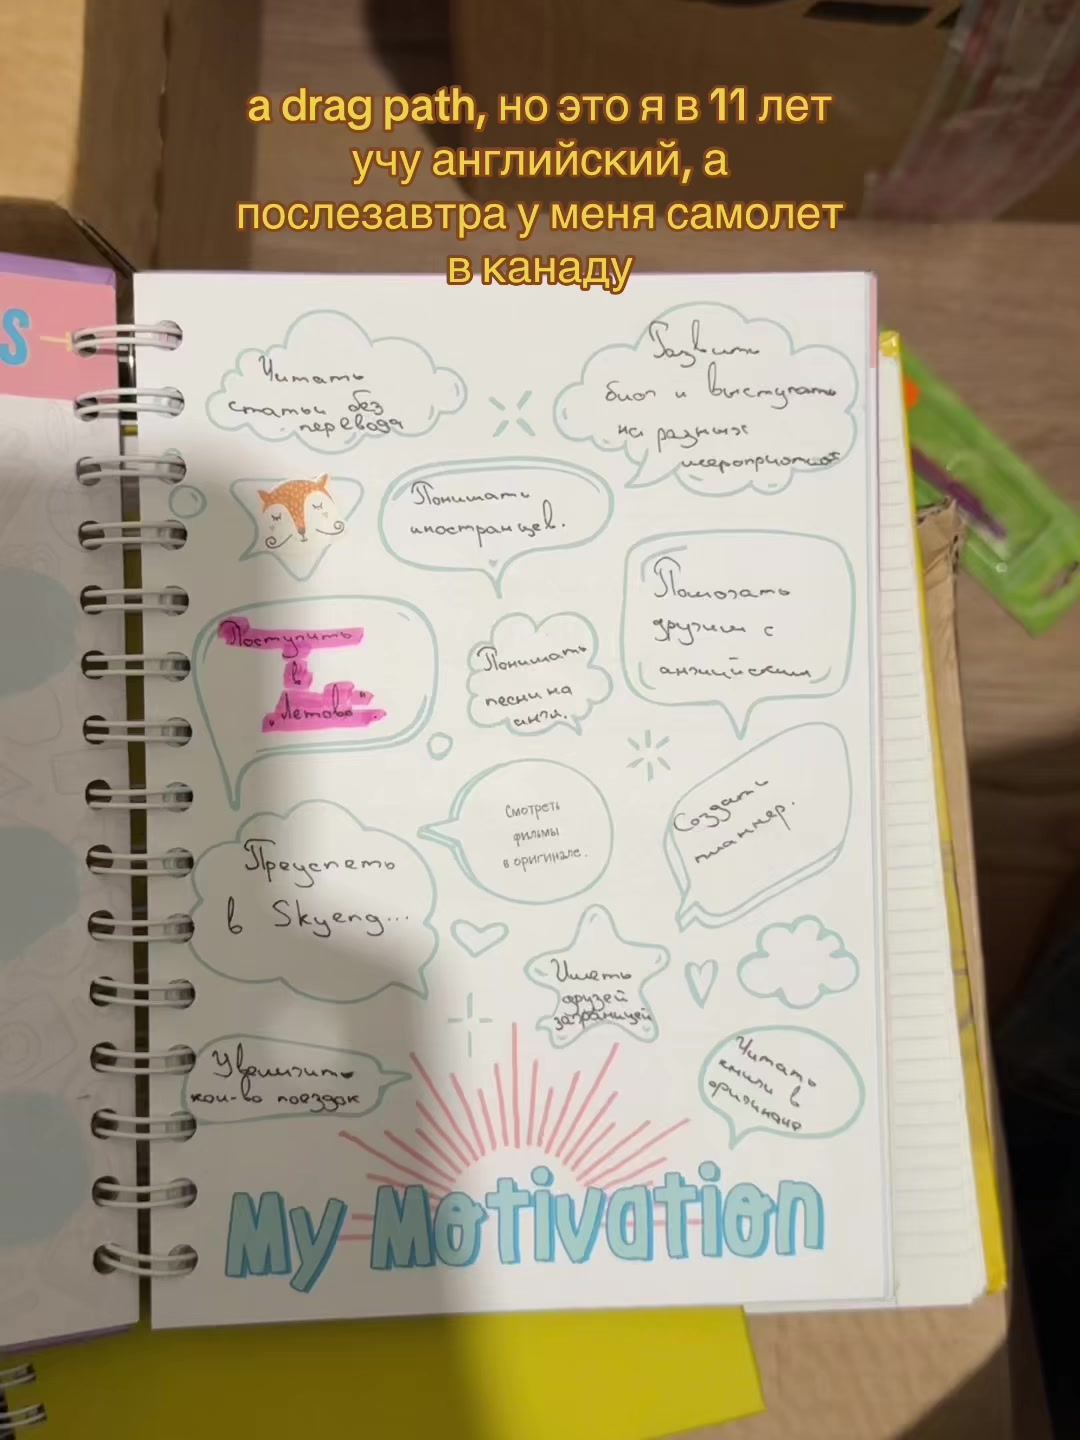 a drag path, но это я в 11 лет
учу английский, а
послезавтра у меня самолет
в канаду
S
Читать
статьи без
перевода
Развить
блог и выступать
на разных
мероприятиях
Понимать
иностранцев.
Помогать
другим с
английским
Поступить
в
"Летово".
Понимать
песни на
англ.
Смотреть
фильмы
в оригинале.
Создать
планнер.
Преуспеть
в Skyeng...
Иметь
друзей
заграницей
Увеличить
кол-во поездок
Читать
книги в
оригинале
My Motivation